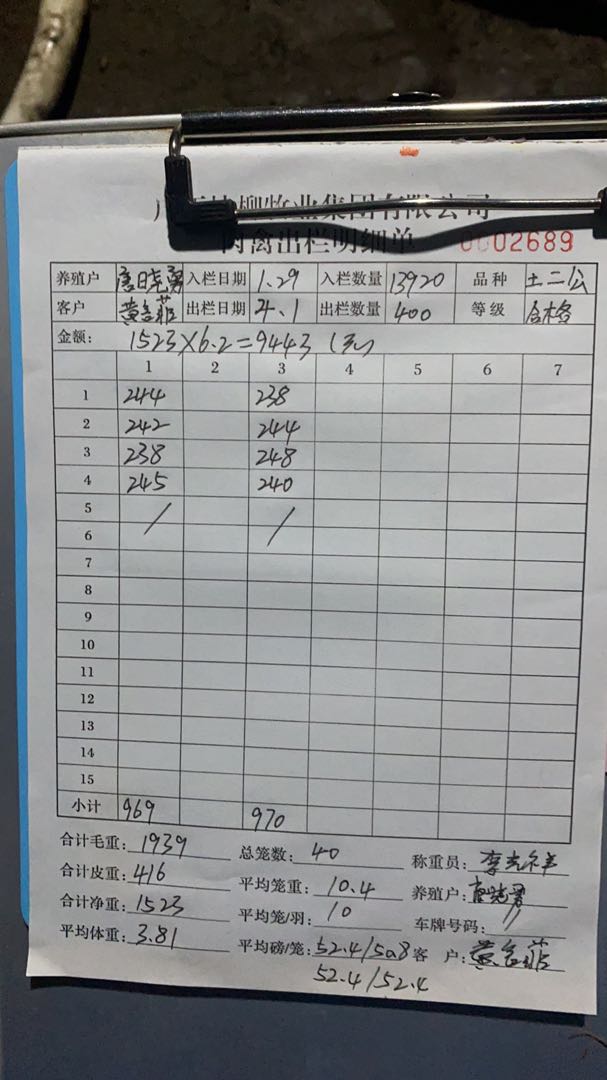 牧业集团有限公司
肉禽出栏明细单 0002689
养殖户 唐晓勇 入栏日期 1.29 入栏数量 13920 品种 土二公
客户 出栏日期 4.1 出栏数量 400 等级 合格
金额: 1523×6.2=9443(元)
1 2 3 4 5 6 7
1 244 238
2 242 244
3 238 248
4 245 240
5 / /
6
7
8
9
10
11
12
13
14
15
小计 969 970
合计毛重: 1939 总笼数: 40 称重员:
合计皮重: 416 平均笼重: 10.4 养殖户: 唐晓勇
合计净重: 1523 平均笼/羽: 10 车牌号码: //
平均体重: 3.81 平均磅/笼: 52.4/50.8 客户:
52.4/52.4